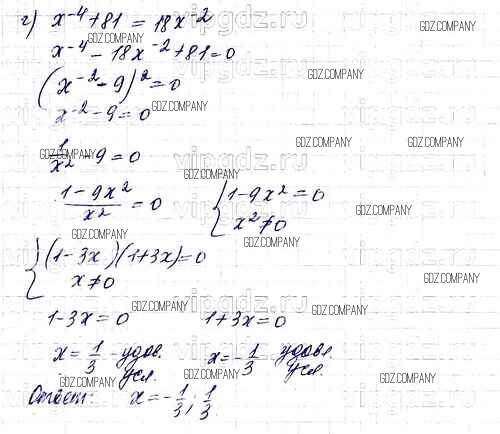 г) x⁻⁴ + 81 = 18x⁻²
x⁻⁴ - 18x⁻² + 81 = 0
(x⁻² - 9)² = 0
x⁻² - 9 = 0
1/x² - 9 = 0
(1 - 9x²)/x² = 0 { 1 - 9x² = 0
x² ≠ 0
{ (1 - 3x)(1 + 3x) = 0
x ≠ 0
1 - 3x = 0 1 + 3x = 0
x = 1/3 - удов. усл. x = -1/3 удовл. усл.
Ответ: x = -1/3; 1/3.
vipgdz.ru
GDZ.COMPANY